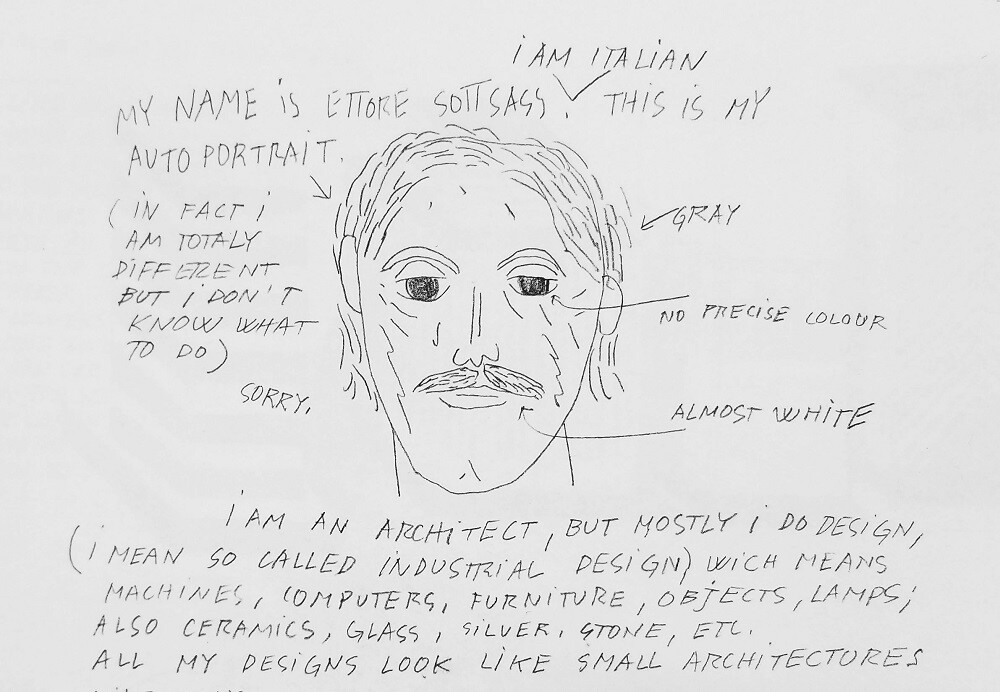 i AM ITALIAN
MY NAME iS ETTORE SOTTSASS. THIS iS MY
AUTO PORTRAIT.
(IN FACT i
AM TOTALY
DIFFERENT
BUT i DON'T
KNOW WHAT
TO DO)
SORRY.
GRAY
NO PRECISE COLOUR
ALMOST WHITE
i AM AN ARCHiTECT, BUT MOSTLY i DO DESIGN,
(i MEAN SO CALLED iNDUSTRiAL DESIGN) WICH MEANS
MACHINES, COMPUTERS, FURNITURE, OBJECTS, LAMPS;
ALSO CERAMICS, GLASS, SILVER, STONE, ETC.
ALL MY DESIGNS LOOK LIKE SMALL ARCHITECTURES